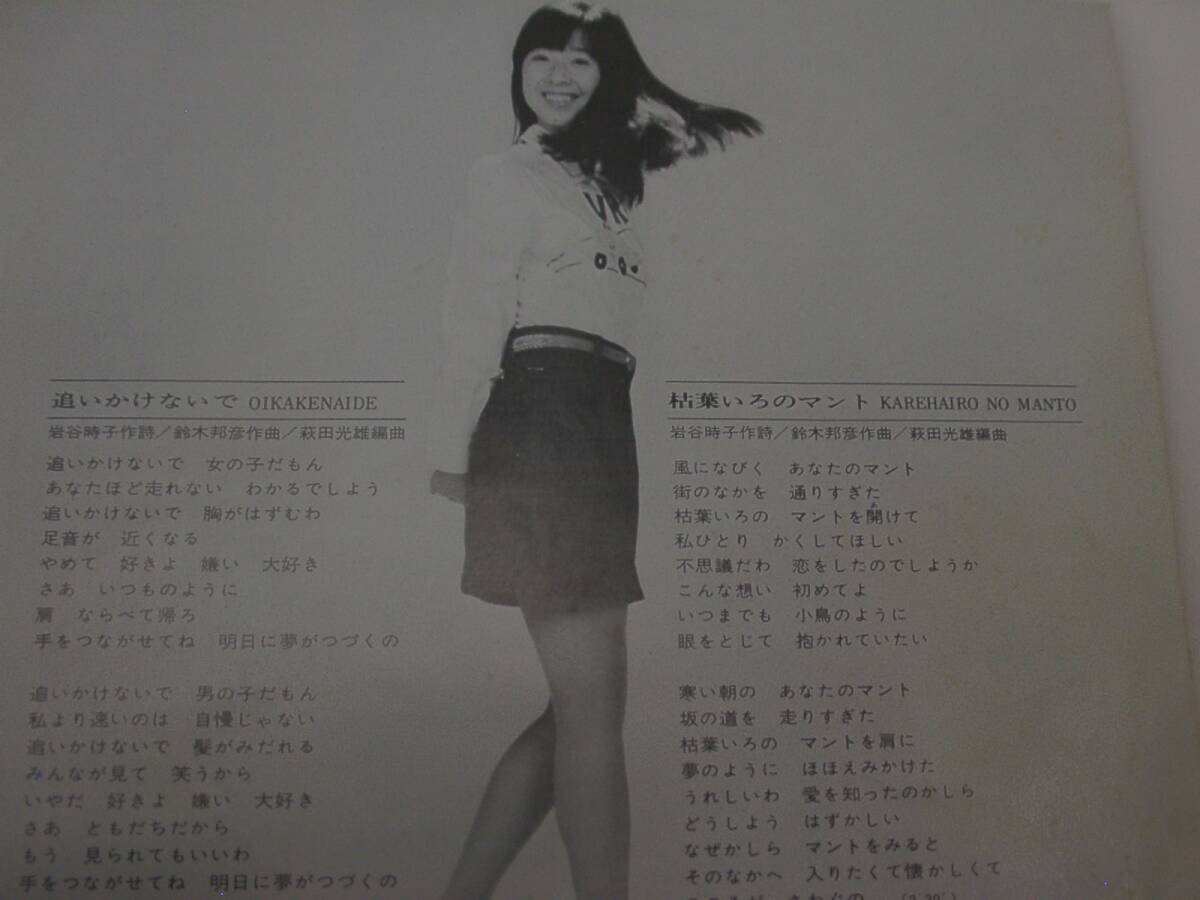 追いかけないで OIKAKENAIDE
岩谷時子作詩／鈴木邦彦作曲／萩田光雄編曲
追いかけないで 女の子だもん
あなたほど走れない わかるでしよう
追いかけないで 胸がはずむわ
足音が 近くなる
やめて 好きよ 嫌い 大好き
さあ いつものように
肩 ならべて帰ろ
手をつながせてね 明日に夢がつづくの
追いかけないで 男の子だもん
私より速いのは 自慢じゃない
追いかけないで 髪がみだれる
みんなが見て 笑うから
いやだ 好きよ 嫌い 大好き
さあ ともだちだから
もう 見られてもいいわ
手をつながせてね 明日に夢がつづくの
枯葉いろのマント KAREHAIRO NO MANTO
岩谷時子作詩／鈴木邦彦作曲／萩田光雄編曲
風になびく あなたのマント
街のなかを 通りすぎた
枯葉いろの マントを開けて
私ひとり かくしてほしい
不思議だわ 恋をしたのでしようか
こんな想い 初めてよ
いつまでも 小鳥のように
眼をとじて 抱かれていたい
寒い朝の あなたのマント
坂の道を 走りすぎた
枯葉いろの マントを肩に
夢のように ほほえみかけた
うれしいわ 愛を知ったのかしら
どうしよう はずかしい
なぜかしら マントをみると
そのなかへ 入りたくて懐かしくて